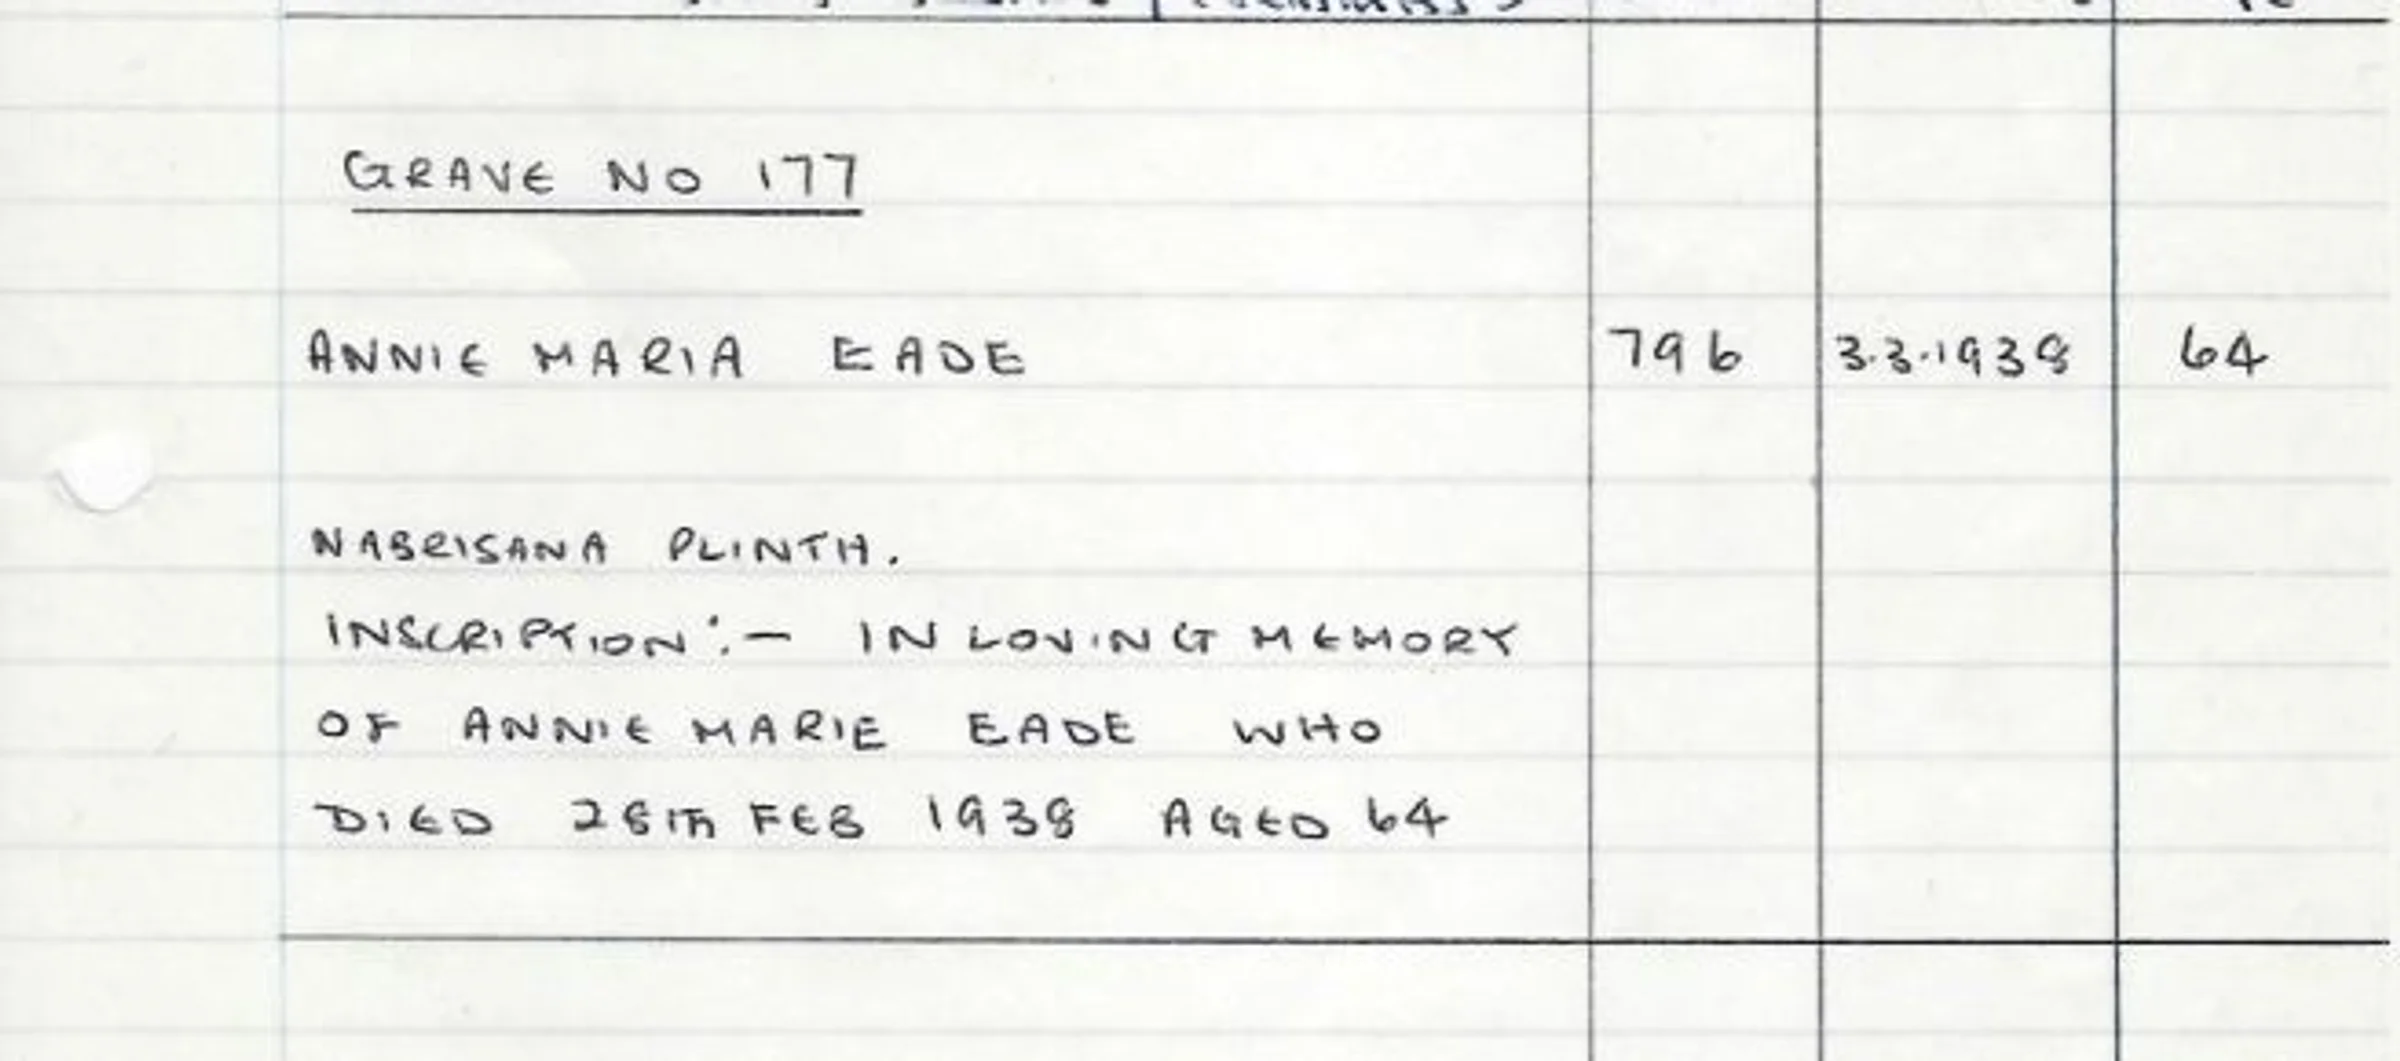 GRAVE NO 177
ANNIE MARIA EADE 796 3.3.1938 64
NABRISANA PLINTH.
INSCRIPTION :- IN LOVING MEMORY
OF ANNIE MARIE EADE WHO
DIED 28TH FEB 1938 AGED 64